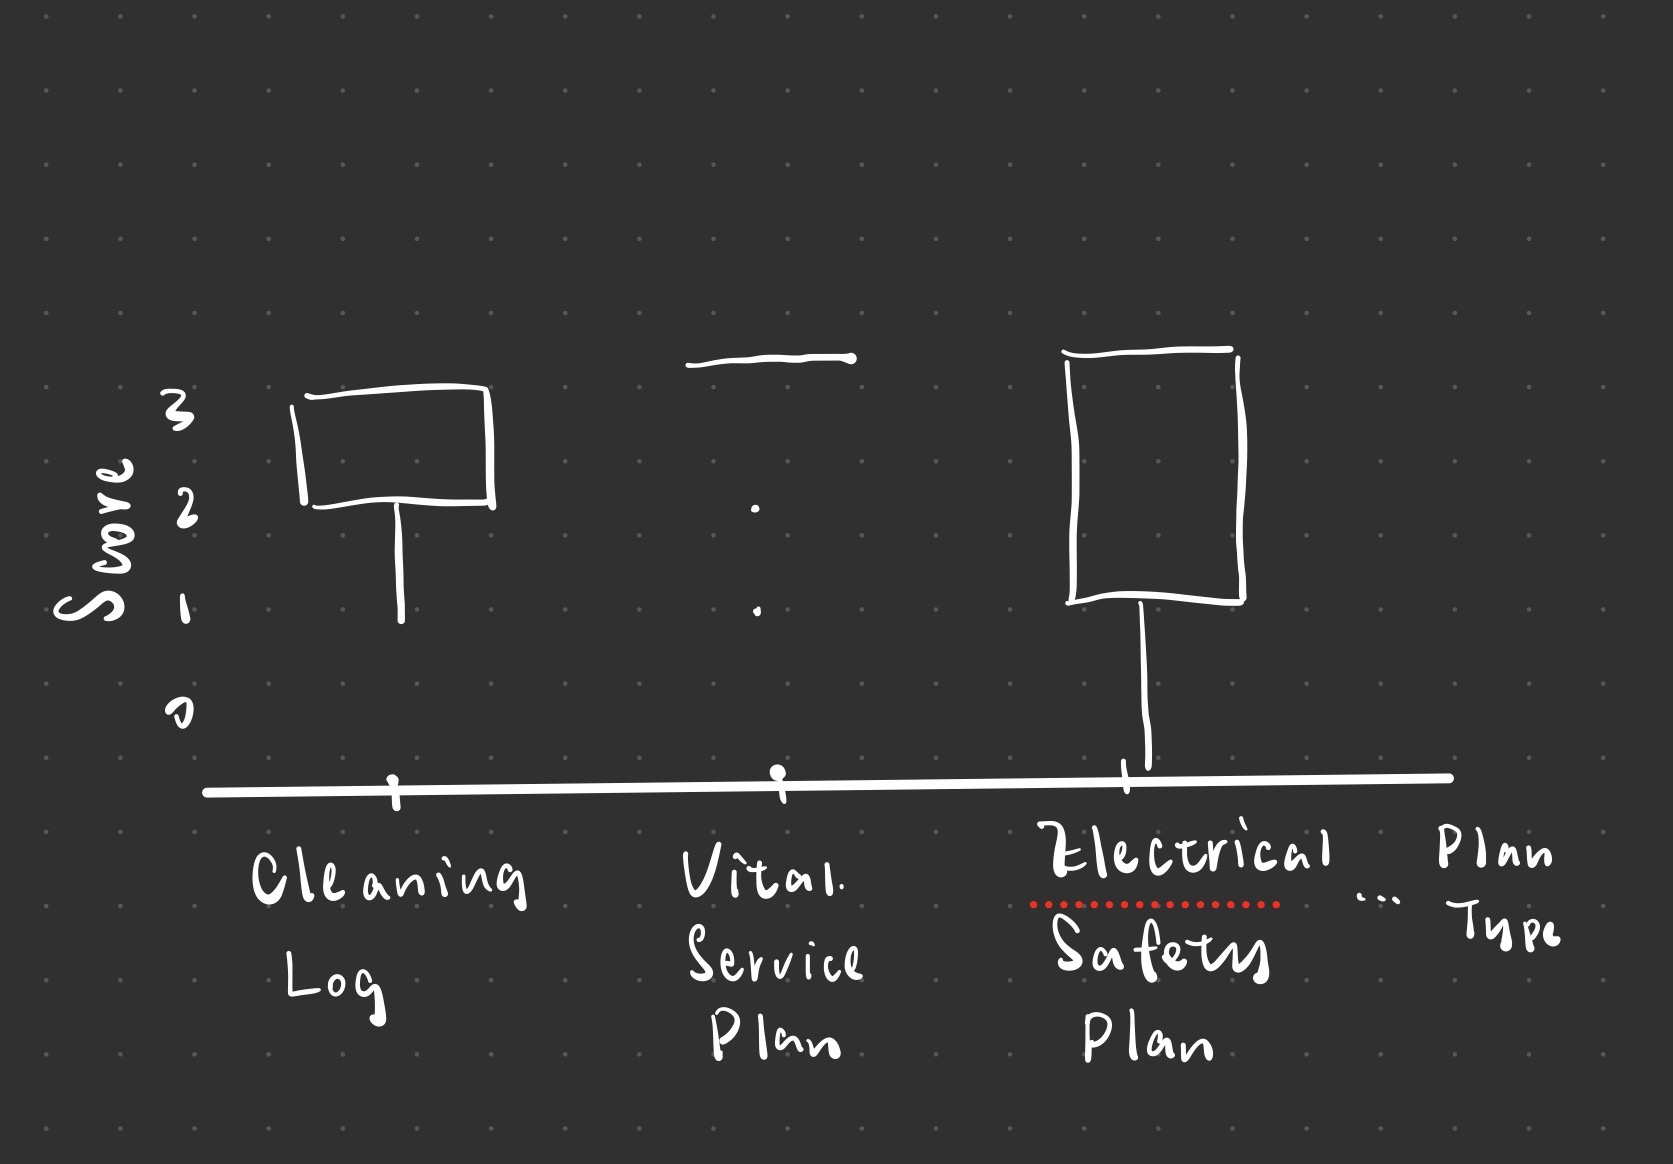 Score
3
2
1
0
Cleaning
Log
Vital
Service
Plan
Electrical
Safety
Plan
...
Plan
Type